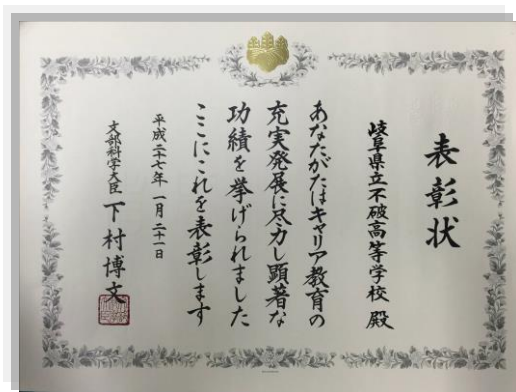 表彰状
岐阜県立不破高等学校 殿
あなたがたはキャリア教育の
充実発展に尽力し顕著な
功績を挙げられました
ここにこれを表彰します
平成二十七年 一月 二十一日
文部科学大臣 下村博文